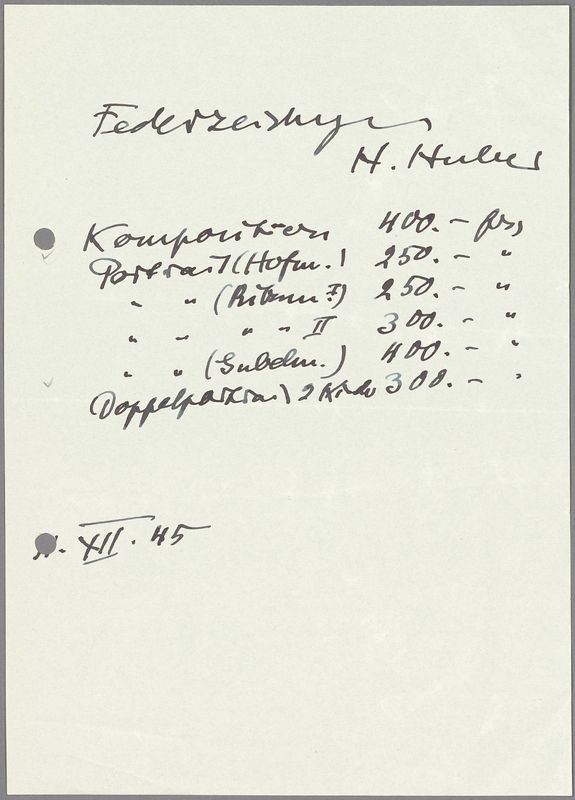 Federzeichnungen
H. Huber
Komposition 400.– frs
Portrait (Hofm.) 250.– "
" " ( I) 250.– "
" " " " II 300.– "
" " (Gubelm.) 400.– "
Doppelportrait 2 Kinder 300.– "
XII. 45